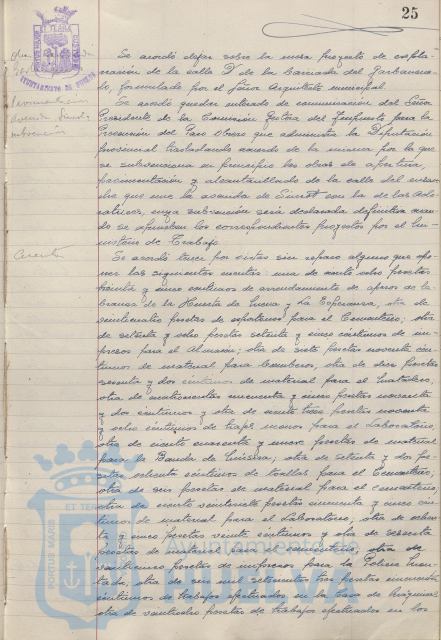 25
Se acordó dejar sobre la mesa proyecto de explanación de la calle Y de la Barriada del Garbanzuelo, formulado por el Señor Arquitecto municipal.
Se acordó quedar enterado de comunicación del Señor
Presidente de la Comisión Gestora del Impuesto para la
Prevención del Paro Obrero que administra la Diputación
provincial trasladando acuerdo de la misma por la que
se subvenciona en principio las obras de apertura,
pavimentación y alcantarillado de la calle del ensanche que une la avenida de con la de las
, cuya subvención será declarada definitiva cuando se aprueben los correspondientes proyectos por el Ministerio de Trabajo.
Cuentas
Se acordó tener por vistas sin reparo alguno que oponer las siguientes cuentas: una de ciento ocho pesetas
treinta y cinco céntimos de arrendamiento de aperos de labranza de la Huerta de y La Esperanza, otra de
veinticuatro pesetas de para el Cementerio; otra
de setenta y ocho pesetas setenta y cinco céntimos de impresos para el Almacén; otra de siete pesetas noventa céntimos de material para Bomberos, otra de diez pesetas
sesenta y dos céntimos de material para el Matadero,
otra de cuatrocientas cincuenta y cinco pesetas noventa
y dos céntimos y otra de ciento tres pesetas noventa
y ocho céntimos de para el Laboratorio,
otra de ciento cuarenta y nueve pesetas de material
para la Banda de Música; otra de setenta y dos pesetas ochenta céntimos de toallas para el Cementerio,
otra de seis pesetas de material para el cementerio,
otra de ciento veintisiete pesetas cincuenta y cinco céntimos de material para el Laboratorio; otra de ochenta y cinco pesetas veinte céntimos y otra de sesenta
pesetas de material para el cementerio, otra de
veinticinco pesetas de impresos para la Policía montada, otra de seis mil setecientas tres pesetas cincuenta
céntimos de trabajos efectuados en la Casa de Máquinas
otra de veintiocho pesetas de trabajos efectuados en los
Ayuntamiento de
PORTUS MARIS
ET TERRAE